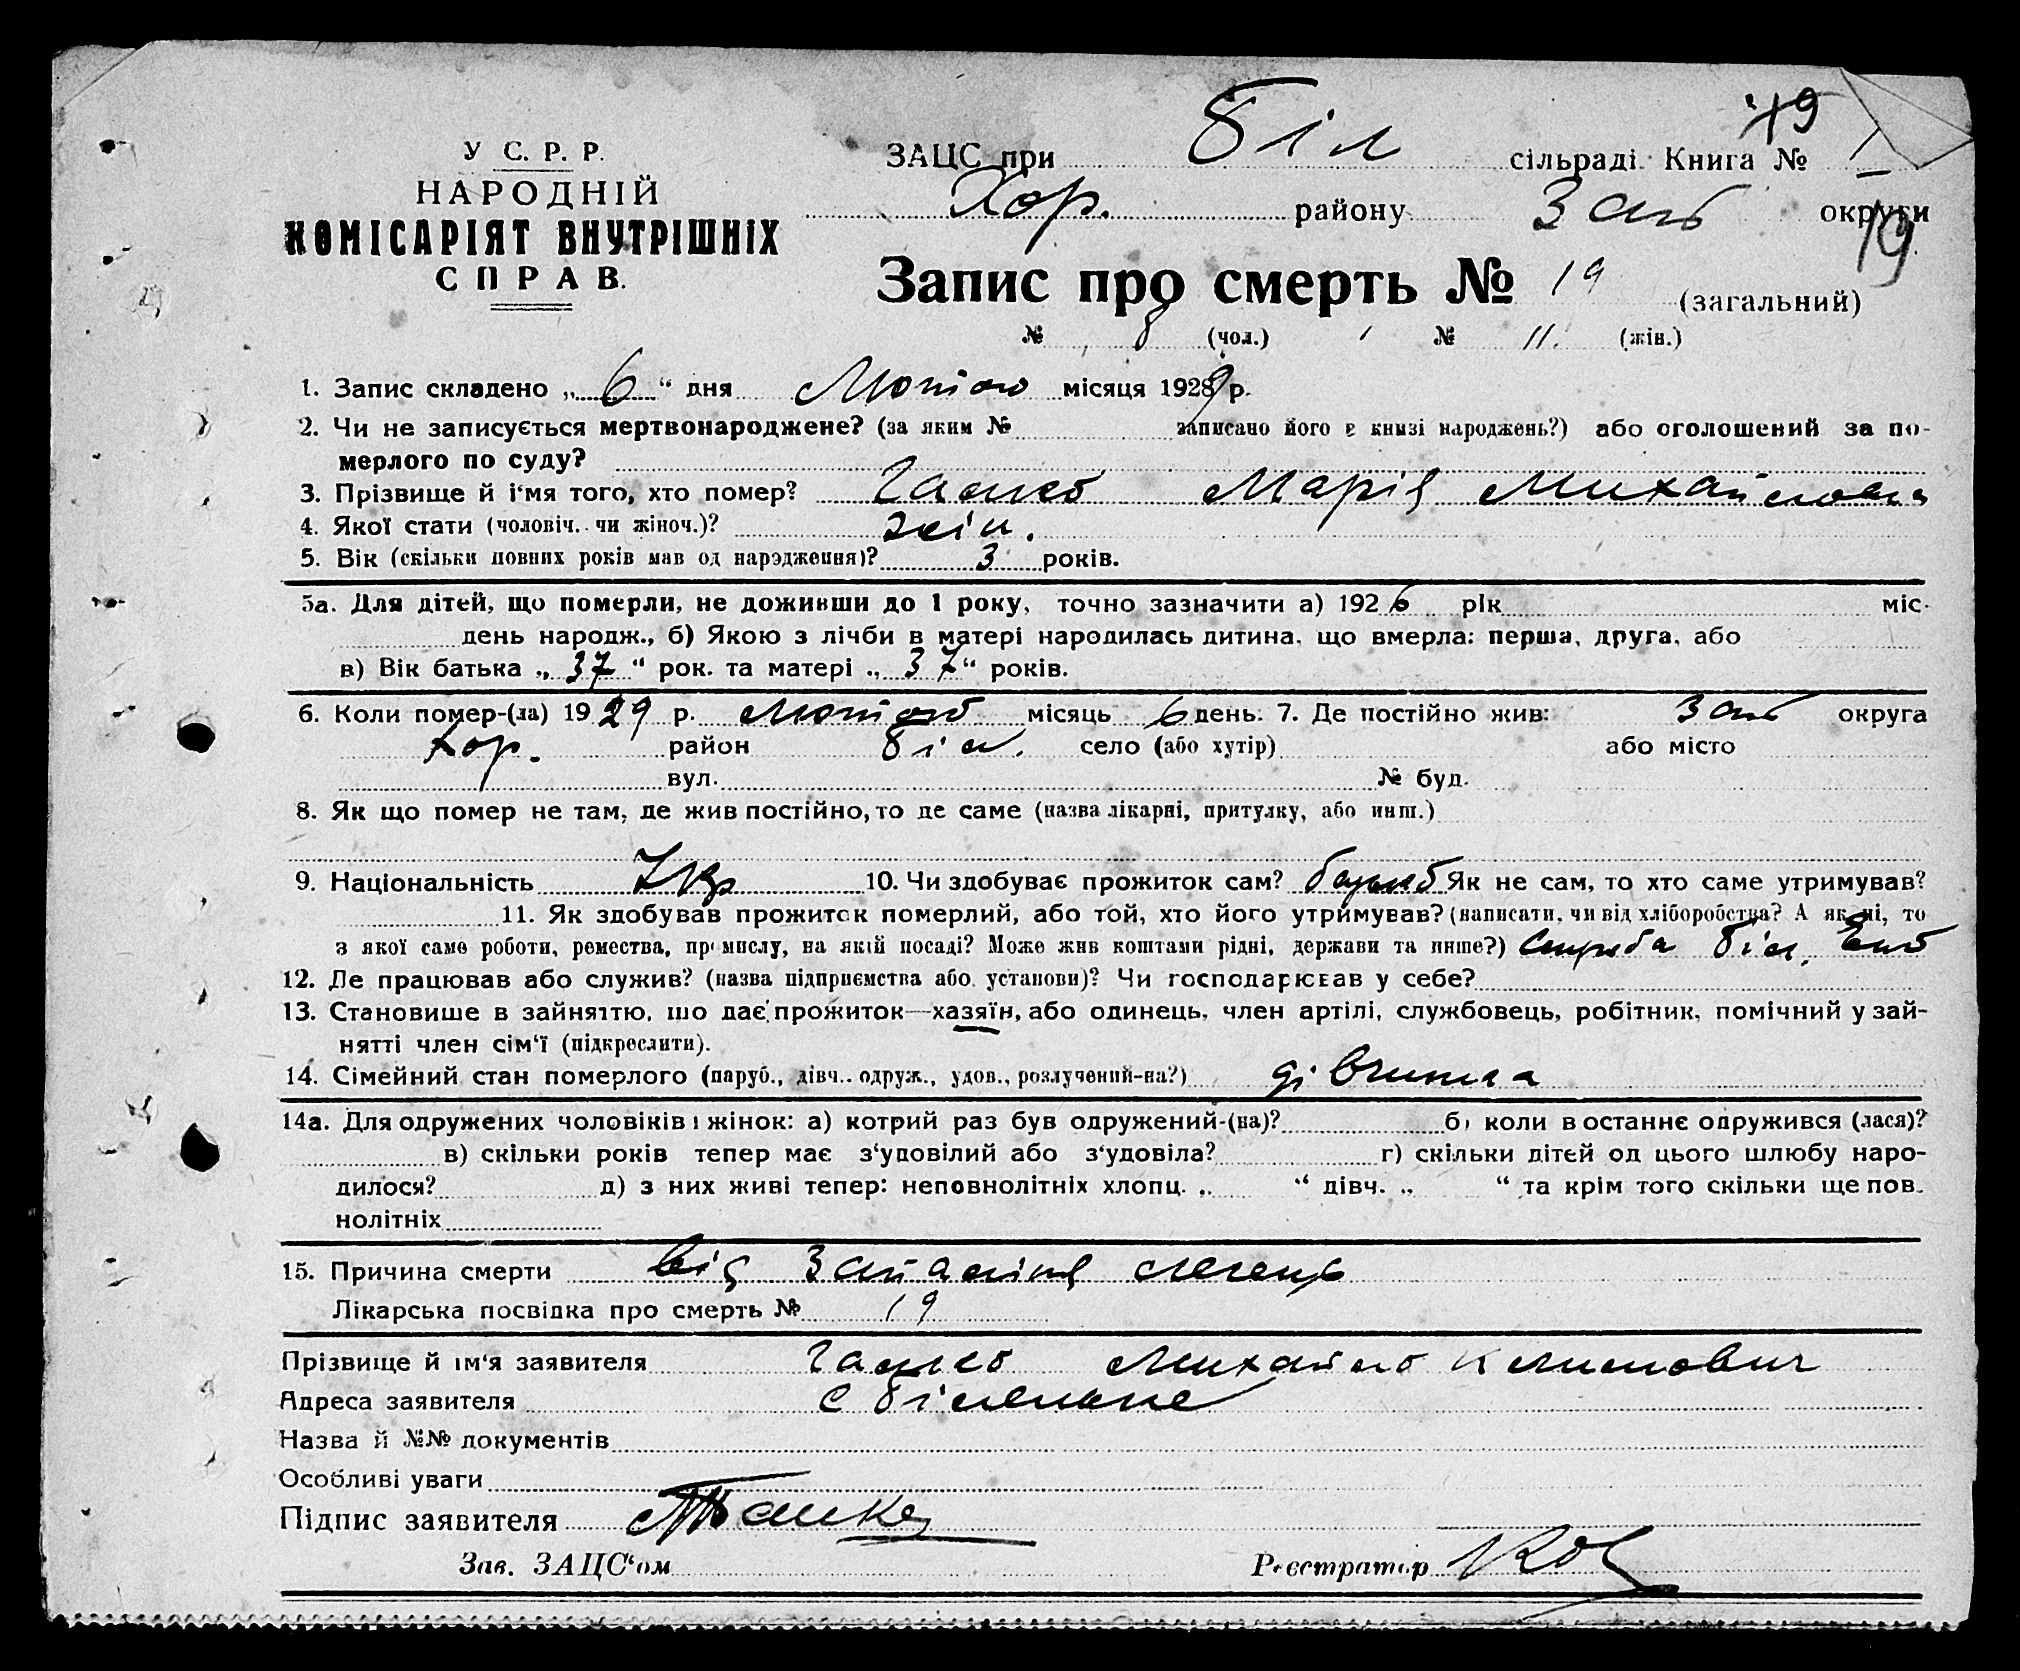 У С. Р. Р.
НАРОДНІЙ
КОМІСАРІЯТ ВНУТРІШНІХ
СПРАВ.
49
ЗАЦС при Біл сільраді. Книга № 1
Хор. району Зап округи
19
Запис про смерть № 19 (загальний)
№ 8 (чол.) № 11. (жін.)
1. Запис складено „ 6 “ дня Лютого місяця 1929 р.
2. Чи не записується мертвонароджене? (за яким № записано його в книзі народжень?) або оголошений за по-
мерлого по суду?
3. Прізвище й і'мя того, хто помер? Галко Марія Михайловна
4. Якої стати (чоловіч. чи жіноч.)? жін.
5. Вік (скільки повних років мав од народження)? 3 років.
5а. Для дітей, що померли, не доживши до 1 року, точно зазначити а) 1926 рік міс.
день народж., б) Якою з лічби в матері народилась дитина, що вмерла: перша, друга, або
в) Вік батька „ 37 “ рок. та матері „ 37 “ років.
6. Коли помер-(ла) 1929 р. Лютого місяць 6 день. 7. Де постійно жив: Зап округа
Хор. район Біл. село (або хутір) або місто
вул. № буд.
8. Як що помер не там, де жив постійно, то де саме (назва лікарні, притулку, або инш.)
9. Національність Укр 10. Чи здобуває прожиток сам? батько Як не сам, то хто саме утримував?
11. Як здобував прожиток померлий, або той, хто його утримував? (написати, чи від хліборобства? А як ні, то
з якої саме роботи, ремества, промислу, на якій посаді? Може жив коштами рідні, держави та инше?) Служба Біл.
12. Де працював або служив? (назва підприємства або установи)? Чи господарював у себе?
13. Становище в зайняттю, що дає прожиток—хазяїн, або одинець, член артілі, службовець, робітник, помічний у зай-
нятті член сім'ї (підкреслити).
14. Сімейний стан померлого (паруб., дівч., одруж., удов., розлучений-на?) дівчинка
14а. Для одружених чоловіків і жінок: а) котрий раз був одружений-(на)? б) коли в останнє одружився (лася)?
в) скільки років тепер має з'удовілий або з'удовіла? г) скільки дітей од цього шлюбу наро-
дилося? д) з них живі тепер: неповнолітніх хлопц. „ “ дівч. „ “ та крім того скільки ще пов.
нолітніх
15. Причина смерти від запалінія легень
Лікарська посвідка про смерть № 19
Прізвище й ім'я заявителя Галко Михайло Климович
Адреса заявителя с Біленьке
Назва й №№ документів
Особливі уваги
Підпис заявителя
Зав. ЗАЦС'ом Реєстратор